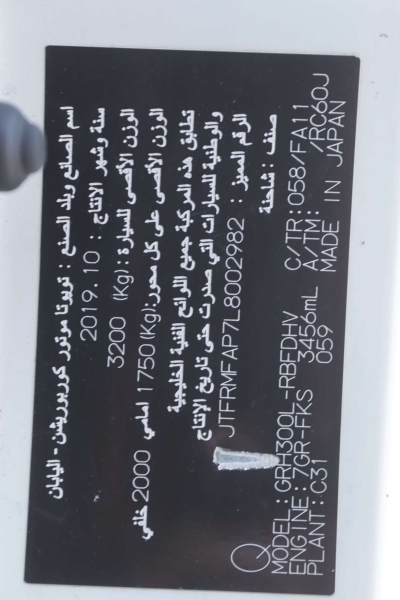 اسم الصانع وبلد الصنع : تويوتا موتور كوربوريشن - اليابان
سنة وشهر الإنتاج : 2019.10
الوزن الأقصى للسيارة : (Kg) 3200
الوزن الأقصى على كل محور:(Kg) 1750 امامي 2000 خلفي
تطابق هذه المركبة جميع اللوائح الفنية الخليجية
والوطنية للسيارات التي صدرت حتى تاريخ الإنتاج
الرقم المميز : JTFRMFAP7L8002982
صنف : شاحنة
MODEL:GRH300L-RBFDHV C/TR:058/FA11
ENGINE:7GR-FKS 3456mL A/TM: /RC60J
PLANT:C31 059 MADE IN JAPAN